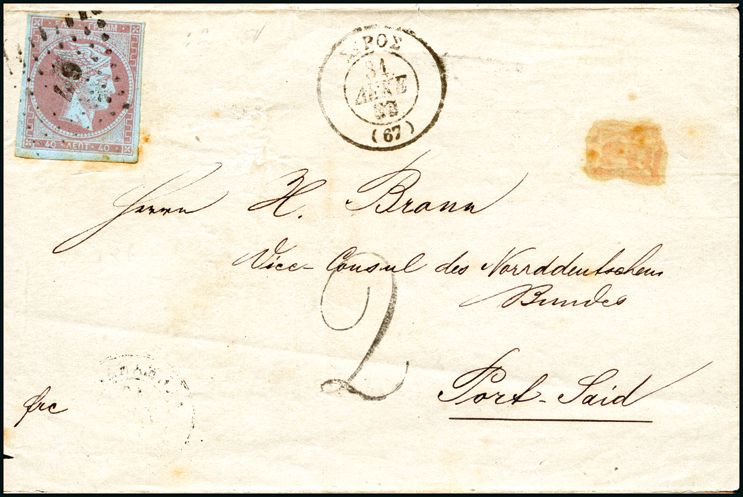 40 ΛΕΠΤ. 40
67
ΣΥΡΟΣ
31
ΔΕΚΕ
(67)
Herrn H. Bronn
Vice-Consul des Norrddeutschen
Bundes
2
Port-Said
frc